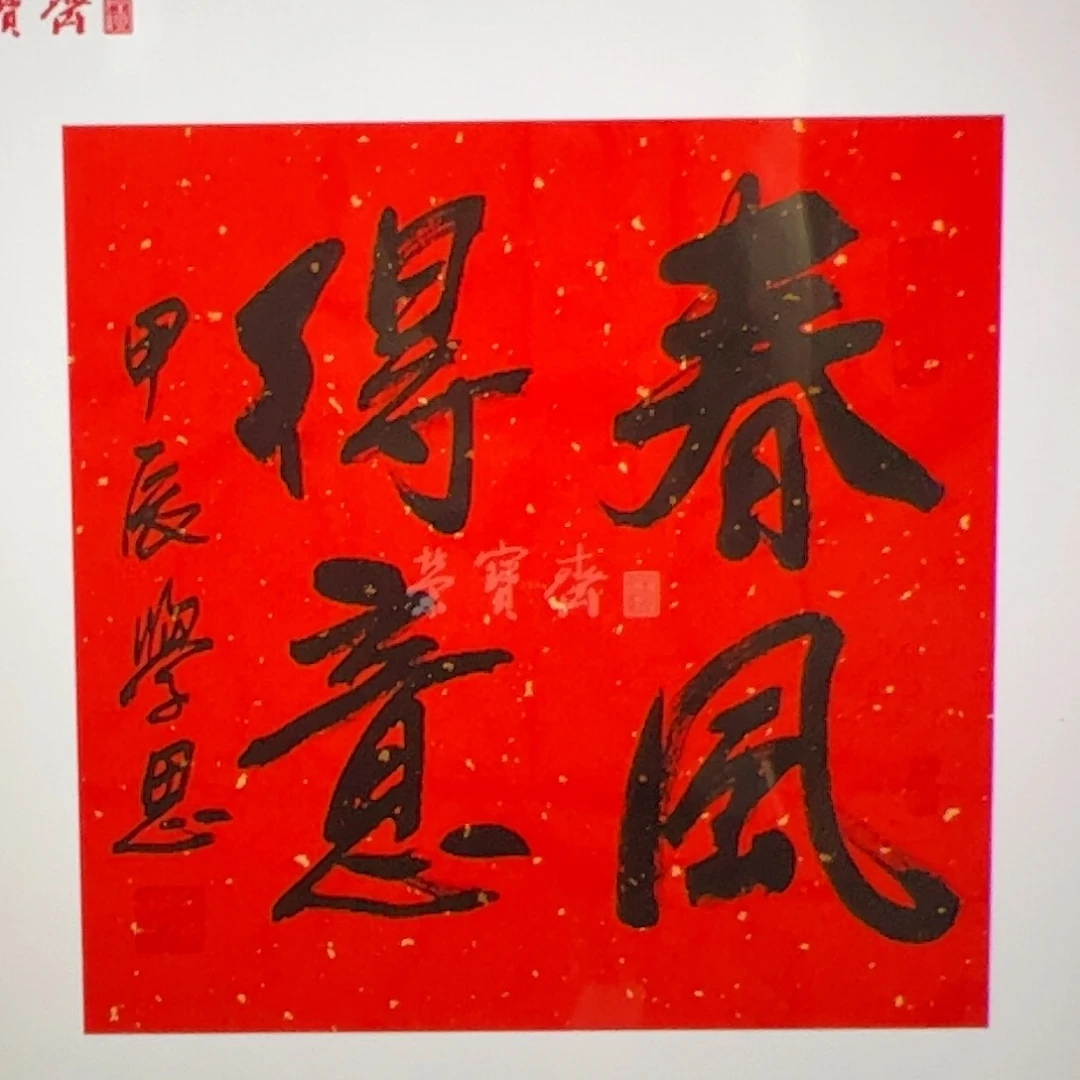 寶齋
春風
得意
甲辰學思
榮寶齋